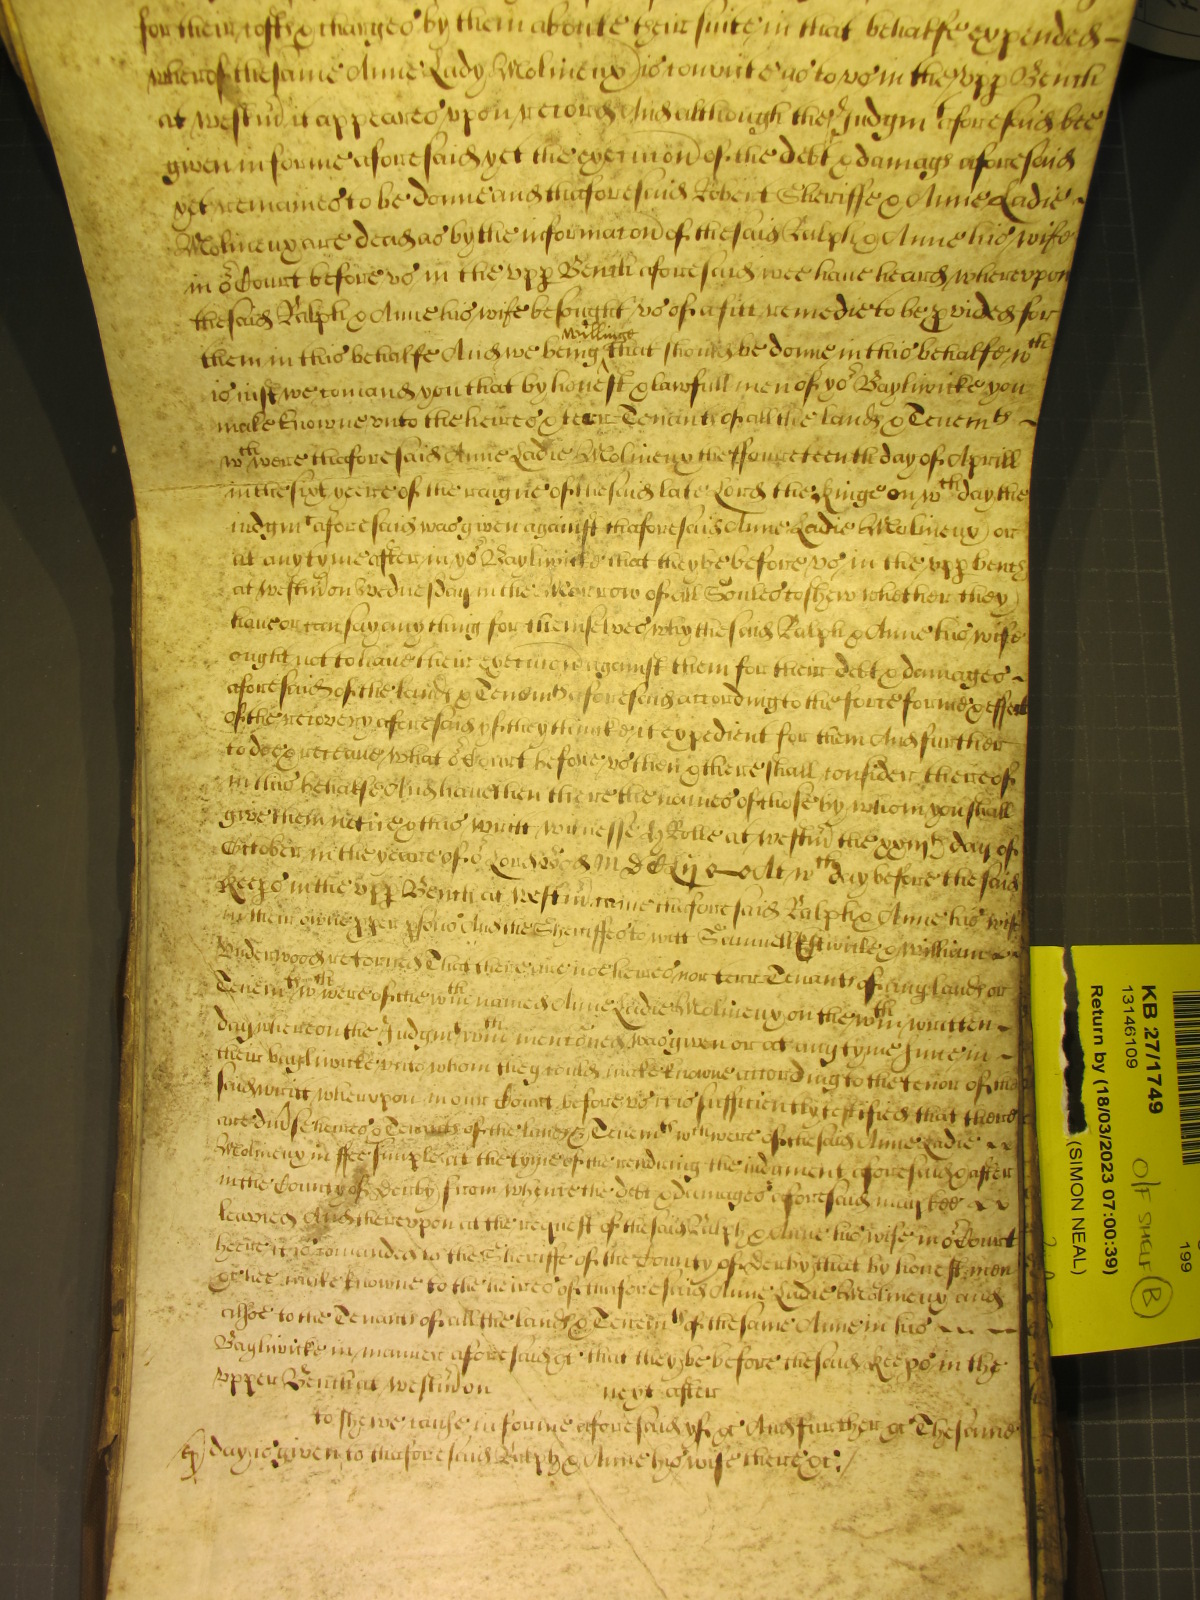 for their costs & charges by them aboute their suite in that behalfe expended
whereof the same Anne Lady Molineux is convicte as to us in the upp Bench
at Westm it appeares upon record And although the Judgmt aforesaid bee
given in forme aforesaid yet the execucon of the debt & damages aforesaid
yet remaines to be donne and thaforesaid Robert Sheriffe & Anne Ladie
Molineux are dead as by the informacon of the said Ralph & Anne his wife
in or Court before us in the upp Bench aforesaid wee have heard whereupon
the said Ralph & Anne his wife besought us of a fitt remedie to be pvided for
them in this behalfe And we being willinge that should be donne in this behalfe wth
is just we comand you that by honest & lawfull men of yor Bayliwicke you
make knowne unto the heires & terr Tenants of all the lands & Tenemts
wth were thaforesaid Anne Ladie Molineux the ffourteenth day of Aprill
in the sixt yeere of the raigne of the said late Lord the Kinge on wth day the
judgmt aforesaid was given against thaforesaid Anne Ladie Molineux or
at any tyme after in yor Bayliwicke that they be before us in the upp bench
at Westm on Wednesday in the Morrow of all Soules to shew whether they
have or can say any thing for themselves why the said Ralph & Anne his wife
ought not to have their execucon against them for their debt & damages
aforesaid of the lands & Tenemts aforesaid according to the force forme & effect
of the recovery aforesaid yf they thinke it expedient for them And further
to doe & receave what or Court before us then & there shall consider thereof
in this behalfe And have then there the names of those by whom you shall
give them notice & this writt witnesse H Rolle at Westm the xxiijth day of
October in the yeare of or Lord God MDCLij At wth day before the said
Keeps in the upp Bench at Westm came thaforesaid Ralph & Anne his wife
in their owne pper psons And the Sheriffes to witt Samuell & William
Underwood retorned That there are noe heires nor terr Tenants of any lands or
Tenemts wth were of the wthin named Anne Ladie Molineux on the wthin written
day whereon the Judgmt wthin mentoned was given or at any tyme since in
their bayliwicke unto whom they could make knowne according to the tenor of the
said writt whereupon in our Court before us it is sufficiently testified that there
are divse heires & Tenants of the lands & Tenemts wth were of the said Anne Ladie
Molineux in ffee simple at the tyme of the rendring the judgment aforesaid & after
in the County of Derby from whence the debt & damages aforesaid may bee
leavied And thereupon at the request of the said Ralph & Anne his wife in or Court
heere it is comanded to the Sheriffe of the County of Derby that by honest men
&c hee make knowne to the heires of thaforesaid Anne Ladie Molineux and
alsoe to the Tenants of all the lands & Tenemts of the same Anne in his
Bayliwicke in manner aforesaid &c that they be before the said Keeps in the
upper Bench at Westm on next after
to shewe cause in forme aforesaid yf &c And further &c The same
day is given to thaforesaid Ralph & Anne his wife there &c
KB 27/1749
13146109
Return by (18/03/2023 07:00:39)
(SIMON NEAL)
199
O/F SHELF B